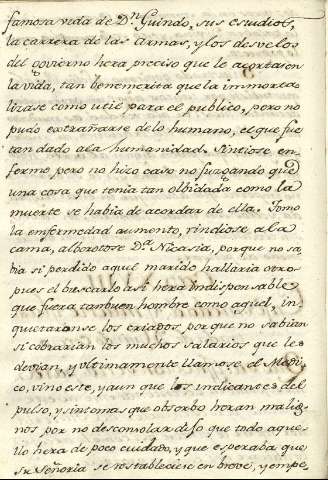 famosa vida de Dn Guindo, sus estudios,
la carrera de las Armas, y los desvelos
del govierno hera preciso que le acortasen
la vida, tan benemerita que la immorta
lizase como util para el publico, pero no
pudo extrañarse de lo humano, el que fue
tan dado a la humanidad. Sintiose en
fermo pero no hizo caso no juzgando qe
una cosa que tenia tan olbidada como la
muerte se habia de acordar de ella. Tomo
la enfermedad aumento, rindiose a la
cama, alborotose Da Nicasia, porque no sa
bia si perdido aquel marido hallaria otro
pues el buscarlo asi hera indispensable
que fuera tan buen hombre como aquel, in
quietaronse los criados, por que no sabian
si cobrarian los muchos salarios que les
devian, y ultimamente llamose al Medi
co, vino este, y aun que los indicantes del
pulso, y sintomas que observo heran malig
nos por no desconsolar dijo que todo aque
llo hera de poco cuidado, y que esperaba que
su Señoria se restableciese en breve, y empe